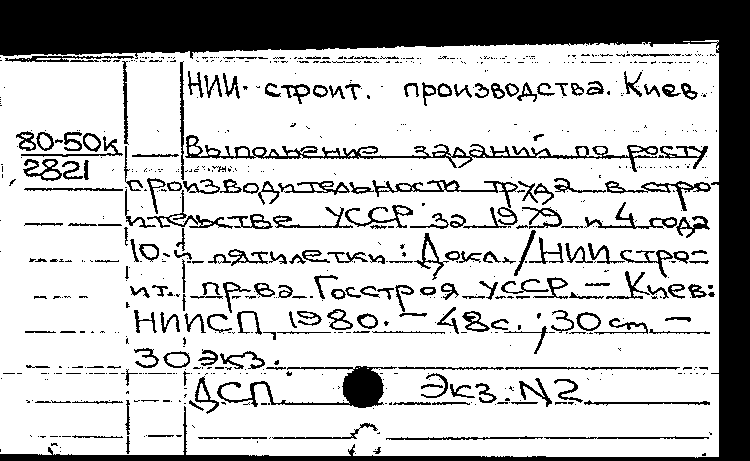 НИИ строит. производства. Киев.
80-50к
2821
Выполнение заданий по росту
производительности труда в стро-
ительстве УССР за 1979 и 4 года
10-й пятилетки: Докл. / НИИ стро-
ит. пр-ва Госстроя УССР. — Киев:
НИИСП, 1980. — 48с.; 30 см. —
30 экз.
ДСП. Экз. N2